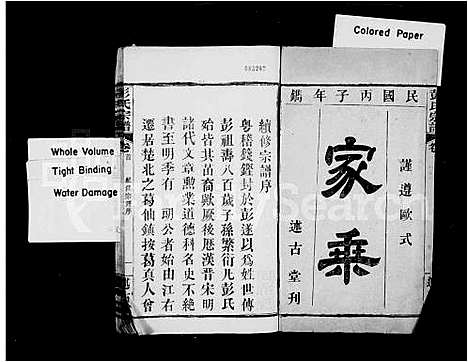 Colored Paper
Whole Volume
Tight Binding
Water Damage
彭氏宗譜
民國丙子年鐫
謹遵歐式
家乘
述古堂刊
續修宗譜序
粤稽籛鏗封於彭遂以為姓世傳
彭祖壽八百歲子孫繁衍凡彭氏
殆皆其苗裔歟厥後歷漢晉宋明
諸代文章勲業道德科名史不絶
書至明季有 朝公者始由江右
遷居楚北之葛仙鎮按葛真人曾
彭氏宗譜